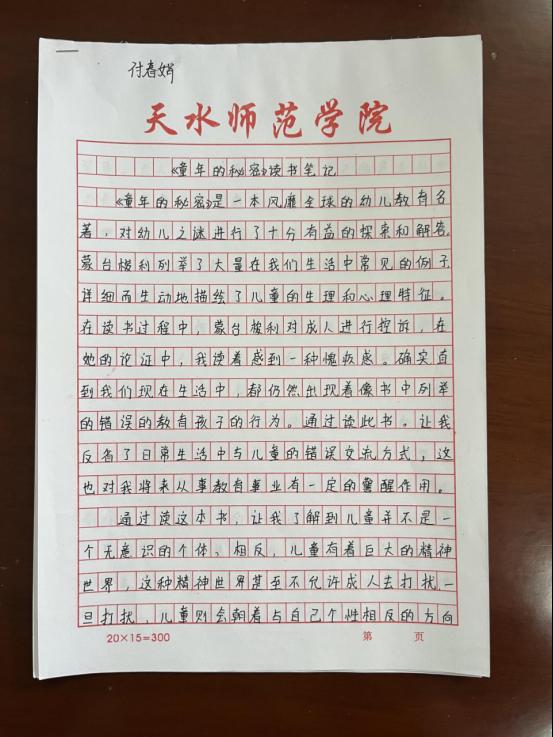 付春娟
天水师范学院
《童年的秘密》读书笔记
《童年的秘密》是一本风靡全球的幼儿教育名
著，对幼儿之谜进行了十分有益的探索和解答。
蒙台梭利列举了大量在我们生活中常见的例子
详细而生动地描绘了儿童的生理和心理特征。
在读书过程中，蒙台梭利对成人进行控诉，在
她的论证中，我读着感到一种愧疚感。确实直
到我们现在生活中，都仍然出现着像书中列举
的错误的教育孩子的行为。通过读此书，让我
反省了日常生活中与儿童的错误交流方式，这
也对我将来从事教育事业有一定的警醒作用。
通过读这本书，让我了解到儿童并不是一
个无意识的个体，相反，儿童有着巨大的精神
世界，这种精神世界甚至不允许成人去打扰，一
旦打扰，儿童则会朝着与自己个性相反的方向
20×15=300 第 页